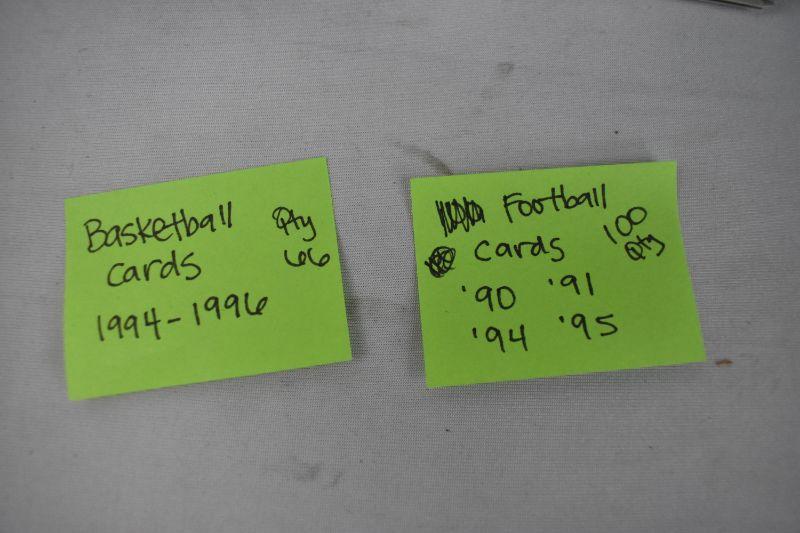 Basketball Qty
cards 66
1994-1996
Football
cards 100 Qty
'90 '91
'94 '95